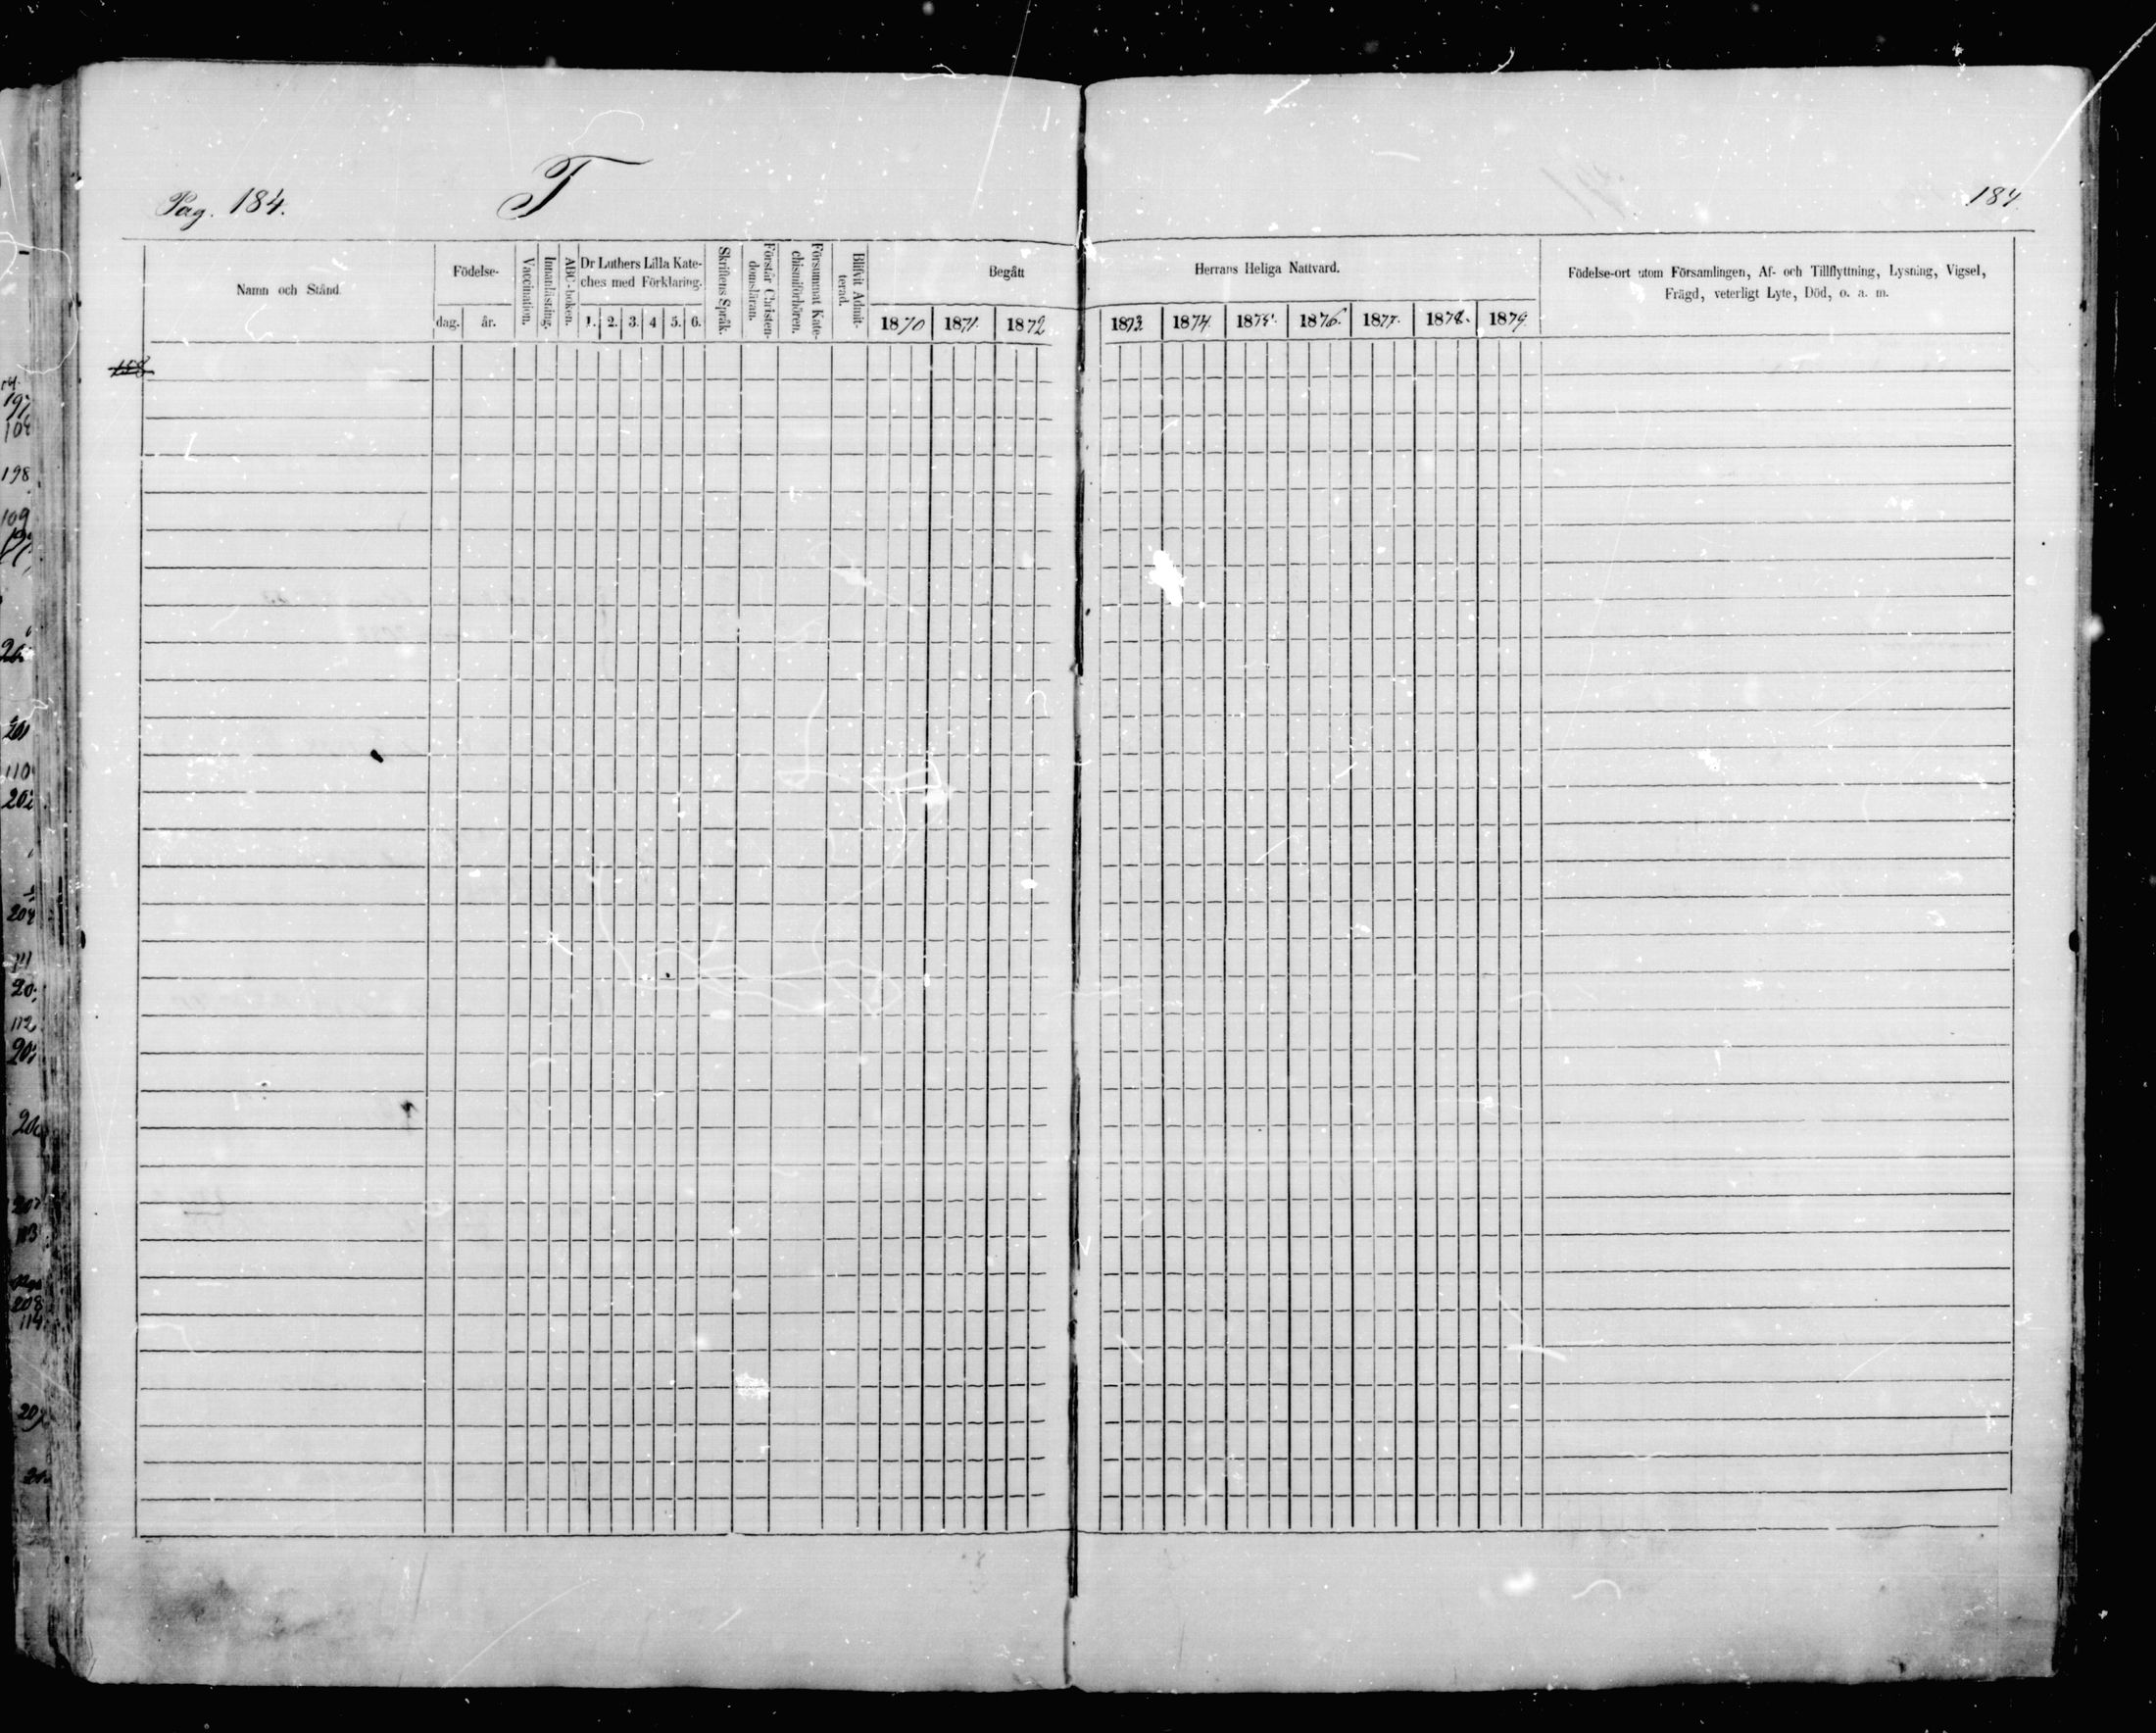 Pag. 184.
T
184
Namn och Stånd
Födelse-
dag.
år.
Vaccination.
Innanläsning.
ABC-boken.
Dr Luthers Lilla Kate-
ches med Förklaring.
1. 2. 3. 4 5. 6.
Skriftens Språk.
Förstår Christen-
domsläran.
Försummat Kate-
chismiförhören.
Blifvit Admit-
terad.
Begått
1870 1871. 1872
Herrans Heliga Nattvard.
1873. 1874. 1875. 1876. 1877. 1878. 1879.
Födelse-ort utom Församlingen, Af- och Tillflyttning, Lysning, Vigsel,
Frägd, veterligt Lyte, Död, o. a. m.
198
109
201
110
112
208
114